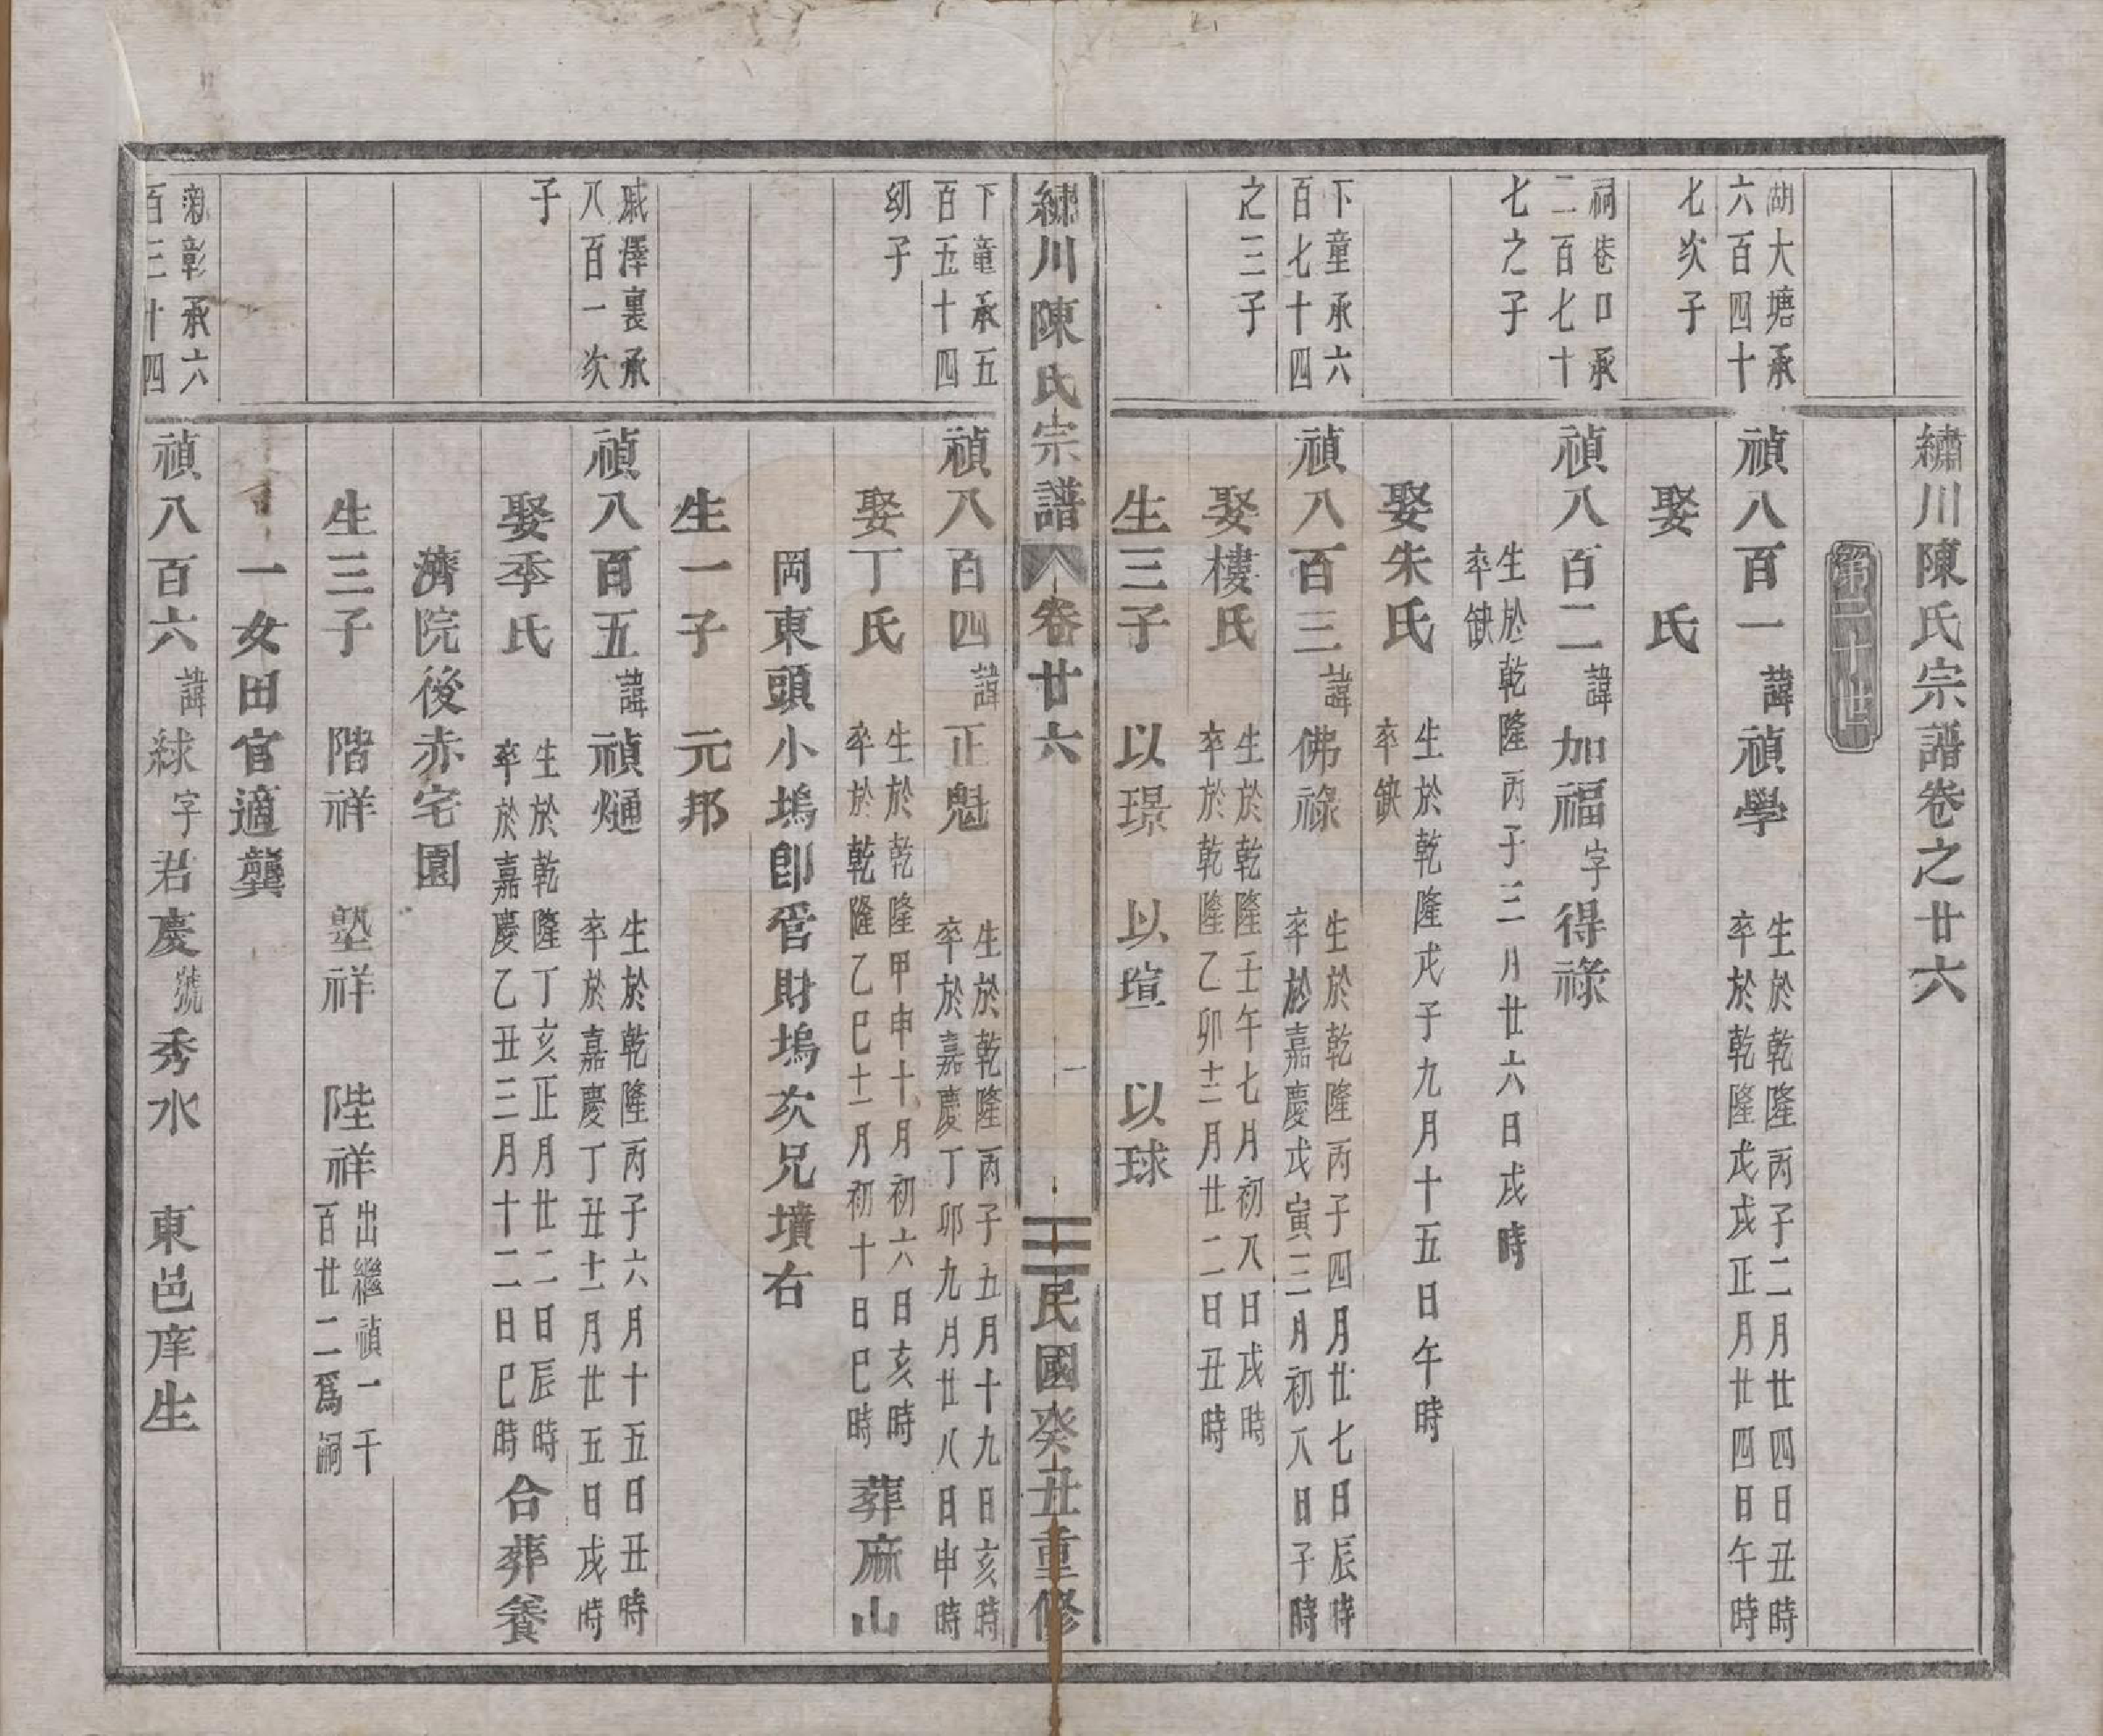 繡川陳氏宗譜卷之廿六
第二十世
湖大塘承
六百四十
七次子
禎八百一諱禎學
生於乾隆丙子二月廿四日丑時
卒於乾隆戊戌正月廿四日午時
娶　氏
祠巷口承
二百七十
七之子
禎八百二諱加福字得祿
生於乾隆丙子三月廿六日戌時
卒缺
娶朱氏
生於乾隆戊子九月十五日午時
卒缺
下童承六
百七十四
之三子
禎八百三諱佛祿
生於乾隆丙子四月廿七日辰時
卒於嘉慶戊寅三月初八日子時
娶樓氏
生於乾隆壬午七月初八日戌時
卒於乾隆乙卯十二月廿二日丑時
生三子　以璟　以瑄　以球
繡川陳氏宗譜　卷廿六　一　民國癸丑重修
下童承五
百五十四
幼子
禎八百四諱正魁
生於乾隆丙子五月十九日亥時
卒於嘉慶丁卯九月廿八日申時
娶丁氏
生於乾隆甲申十月初六日亥時
卒於乾隆乙巳十一月初十日巳時
葬麻山
岡東頭小塢卽官財塢次兄墳右
生一子　元邦
戚澤裏承
八百一次
子
禎八百五諱禎𤐫
生於乾隆丙子六月十五日丑時
卒於嘉慶丁丑十一月廿五日戌時
娶季氏
生於乾隆丁亥正月廿二日辰時
卒於嘉慶乙丑三月十二日巳時
合葬養
濟院後赤宅園
生三子　階祥　塾祥　陛祥
出繼禎一千
百廿二爲嗣
一女田官適龔
新彰承六
百三十四
禎八百六諱絿字君慶號秀水　東邑庠生